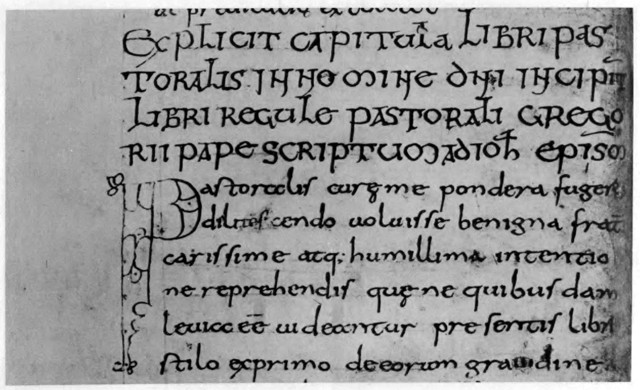 EXPLICIT CAPITULA LIBRI PAS
TORALIS IN NOMINE DNI INCIPIT
LIBRI REGULE PASTORALI GREGO
RII PAPE SCRIPTUM AD IOH EPISCO
Pastoralis curę me pondera fugere
delitescendo uoluisse benigna frat
carissime atq; humillima intentio
ne reprehendis quę ne quibusdam
leuia eē uideantur presentis libri
stilo exprimo de eorum grauidine